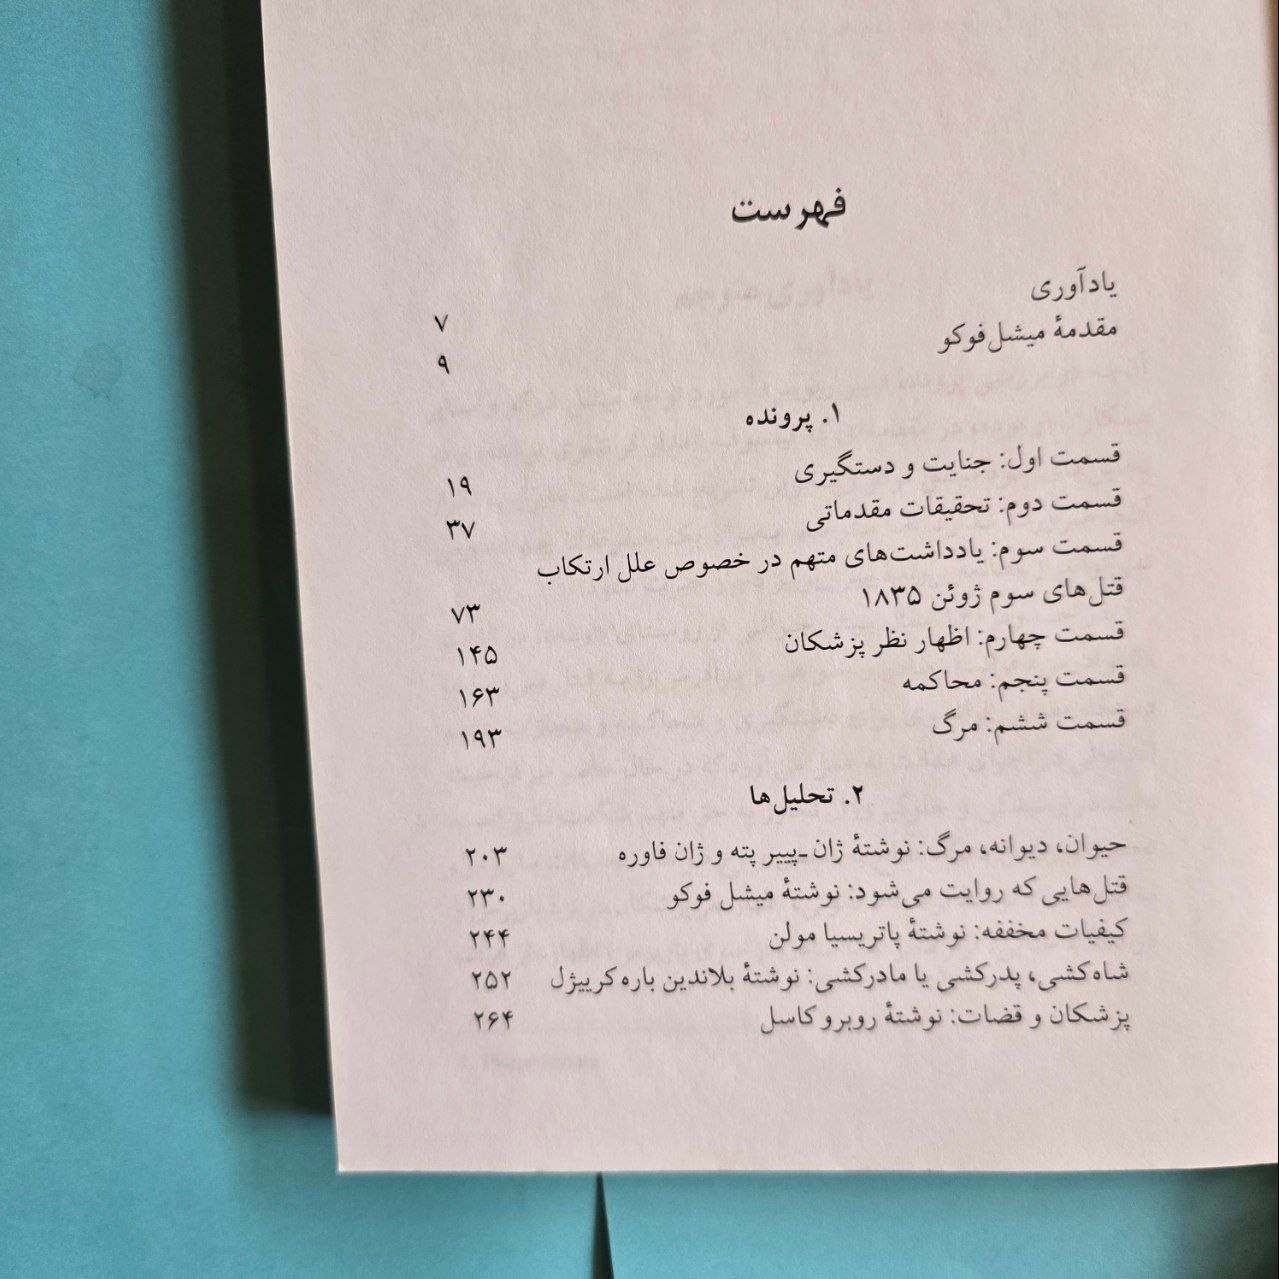 فهرست
یادآوری ۷
مقدمهٔ میشل فوکو ۹
۱. پرونده
قسمت اول: جنایت و دستگیری ۱۹
قسمت دوم: تحقیقات مقدماتی ۳۷
قسمت سوم: یادداشت‌های متهم در خصوص علل ارتکاب
قتل‌های سوم ژوئن ۱۸۳۵ ۷۳
قسمت چهارم: اظهار نظر پزشکان ۱۴۵
قسمت پنجم: محاکمه ۱۶۳
قسمت ششم: مرگ ۱۹۳
۲. تحلیل‌ها
حیوان، دیوانه، مرگ: نوشتهٔ ژان ـ پییر پته و ژان فاوره ۲۰۳
قتل‌هایی که روایت می‌شود: نوشتهٔ میشل فوکو ۲۳۰
کیفیات مخففه: نوشتهٔ پاتریسیا مولن ۲۴۴
شاه‌کشی، پدرکشی یا مادرکشی: نوشتهٔ بلاندین باره کرییژل ۲۵۲
پزشکان و قضات: نوشتهٔ روبرو کاسل ۲۶۴